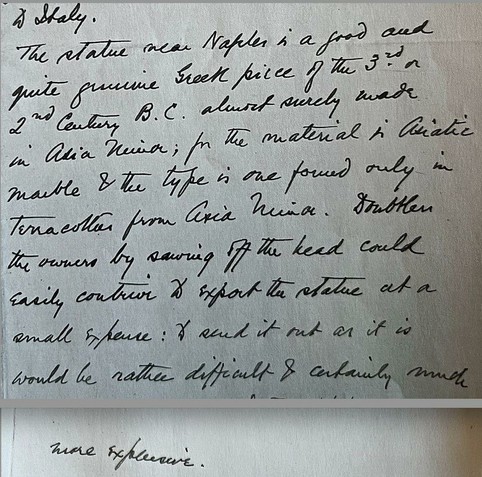 to Italy.
The statue near Naples is a good and
quite genuine Greek piece of the 3rd or
2nd Century B.C. almost surely made
in Asia Minor; for the material is Asiatic
marble & the type is one found only in
terracottas from Asia Minor. Doubtless
the owners by sawing off the head could
easily contrive to export the statue at a
small expense: to send it out as it is
would be rather difficult & certainly much
more expensive.